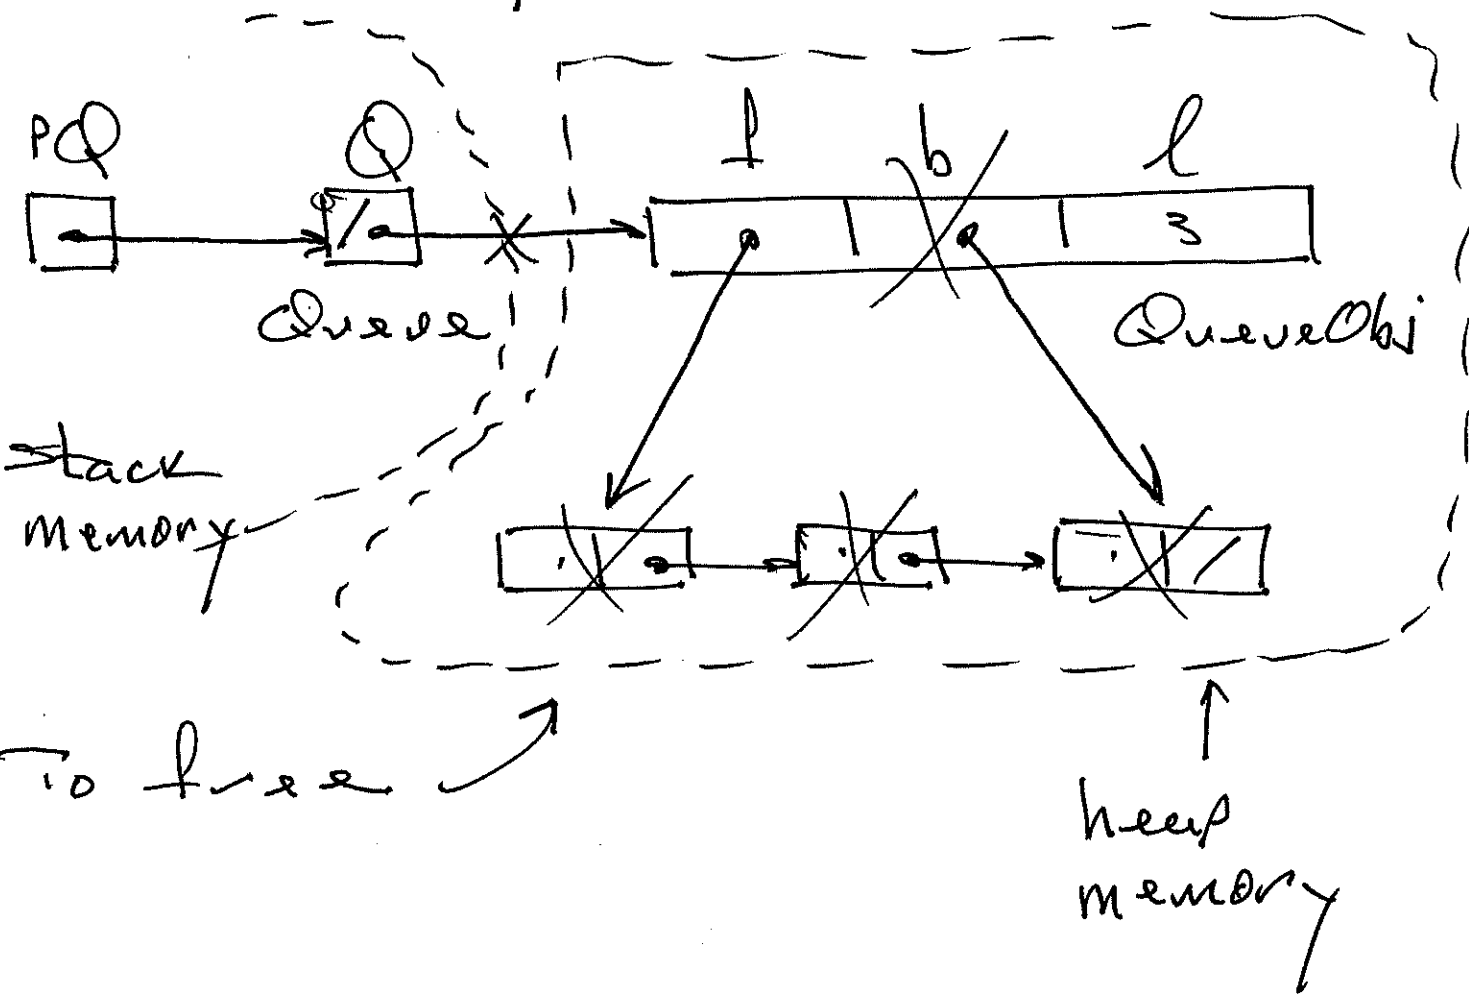 pQ Q f b l
3
Queue QueueObj
Stack
memory
To free
heap
memory